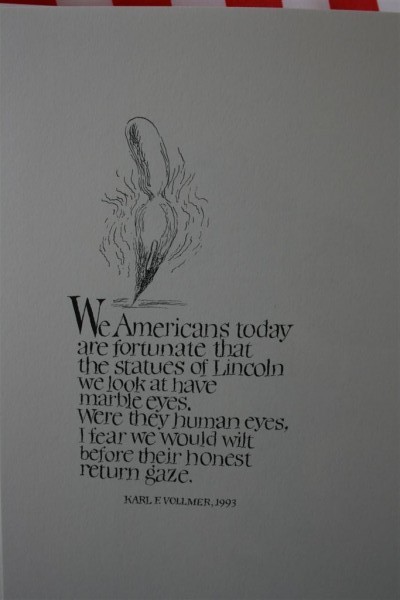 We Americans today
are fortunate that
the statues of Lincoln
we look at have
marble eyes.
Were they human eyes,
I fear we would wilt
before their honest
return gaze.
KARL F. VOLLMER, 1993